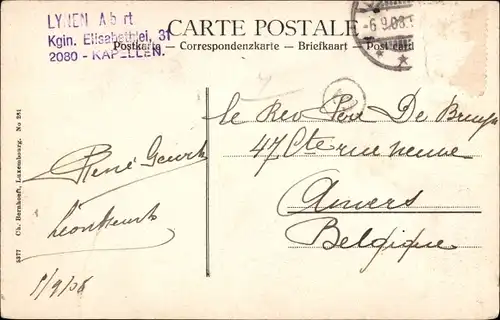 CARTE POSTALE
Postkarte — Correspondenzkarte — Briefkaart — Post card
LYNEN A b rt
Kgin. Elisabethlei, 31
2080 - KAPELLEN.
-6.9.08.
le Rev Père De Bruyn
47 Cte rue neuve
Anvers
Belgique
René
5/9/08
5377 Ch. Bernhoeft, Luxembourg. No 281